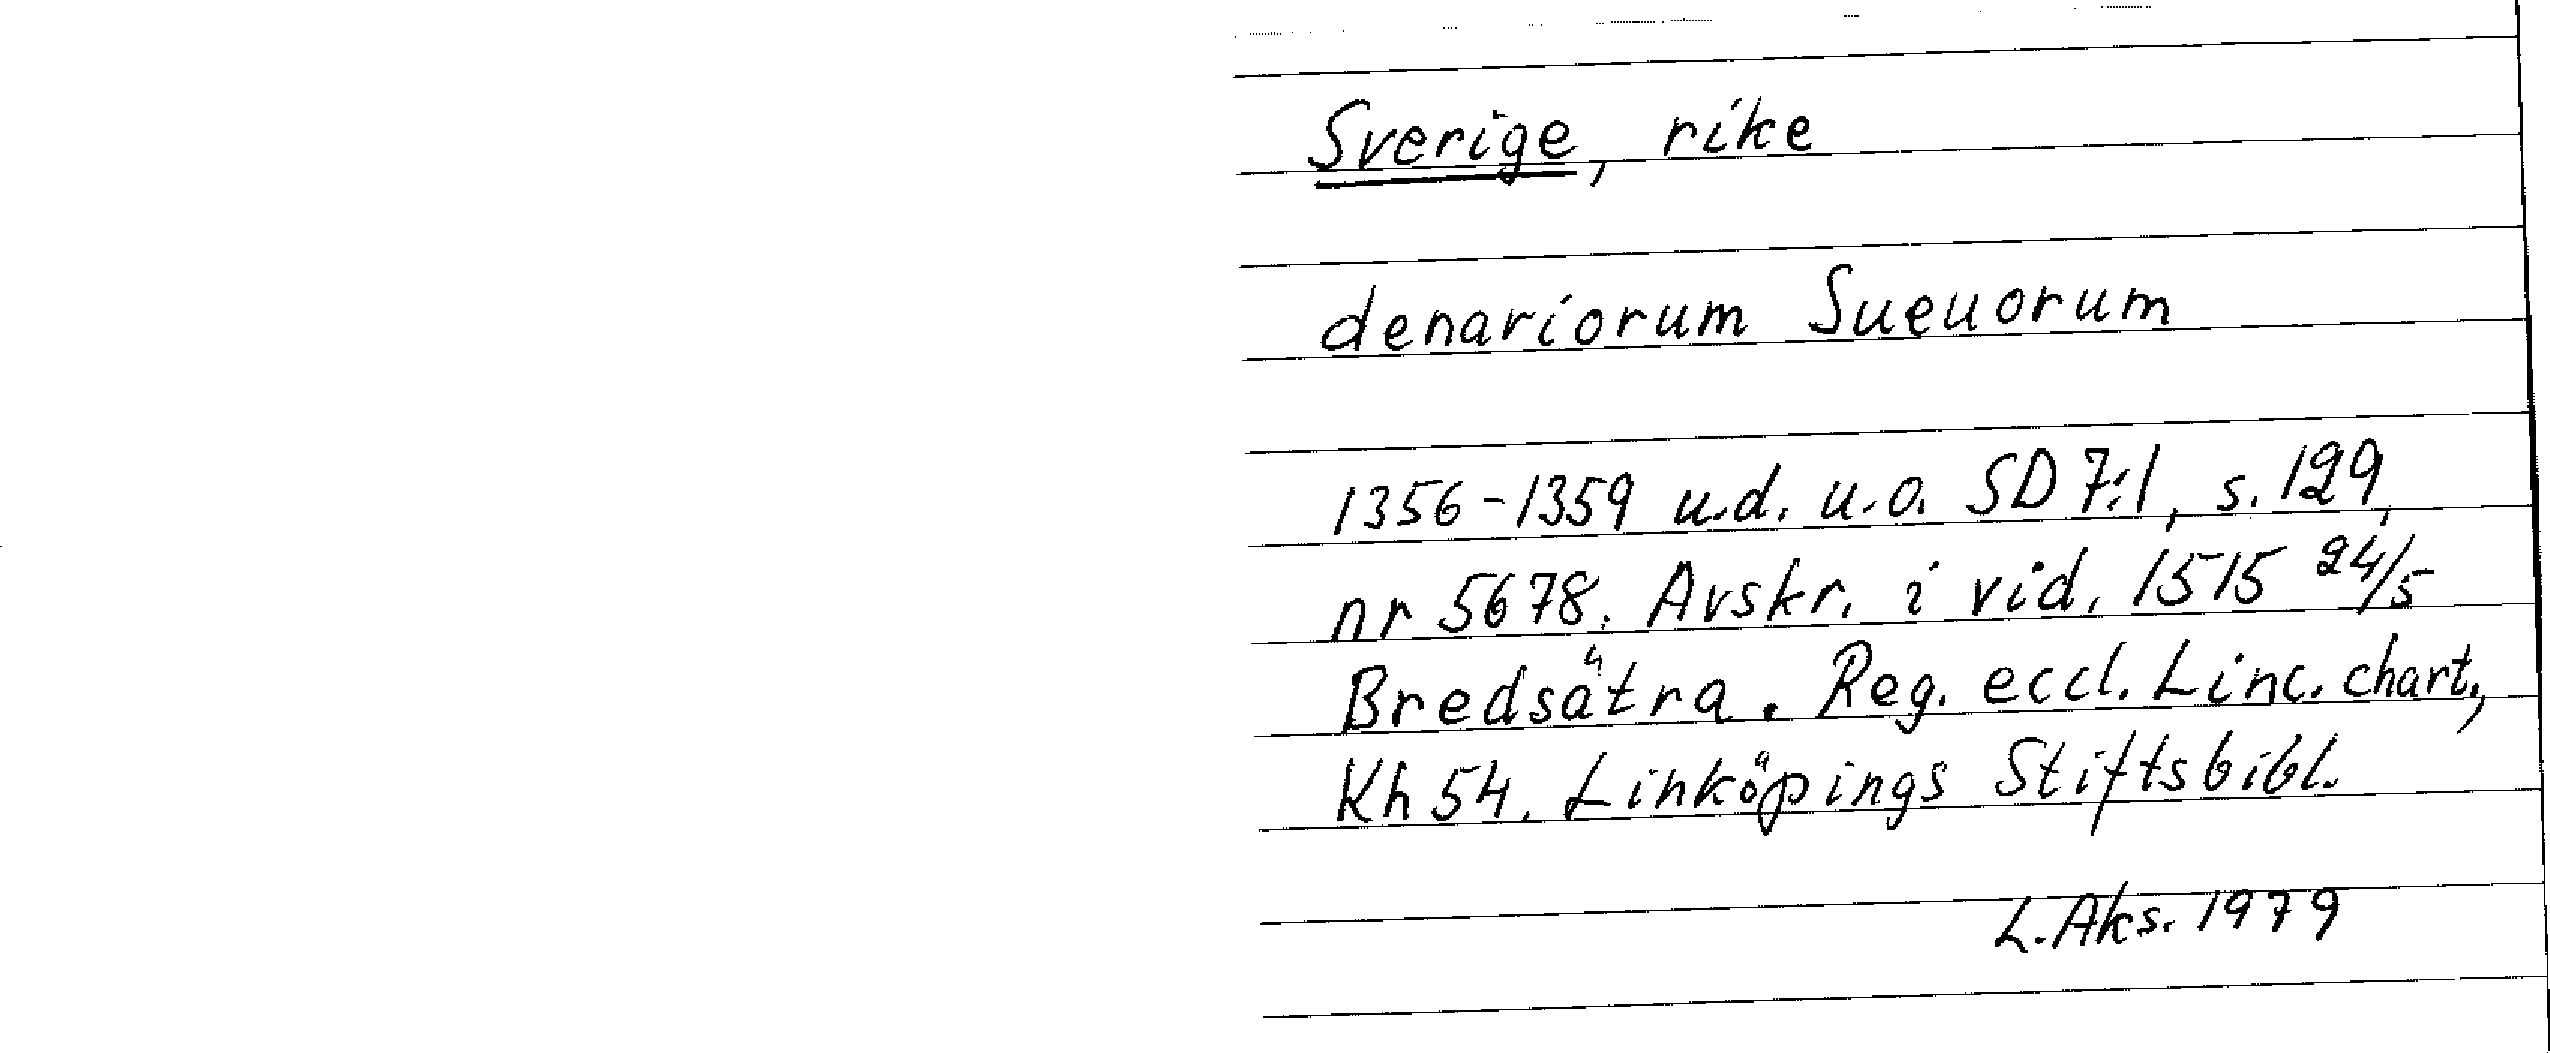 Sverige, rike
denariorum Sueuorum
1356-1359 u.d. u.o. SD 7:1, s. 129,
nr 5678. Avskr. i vid. 1515 24/5
Bredsätra. Reg. eccl. Linc. chart.,
Kh 54. Linköpings Stiftsbibl.
L. Aks. 1979